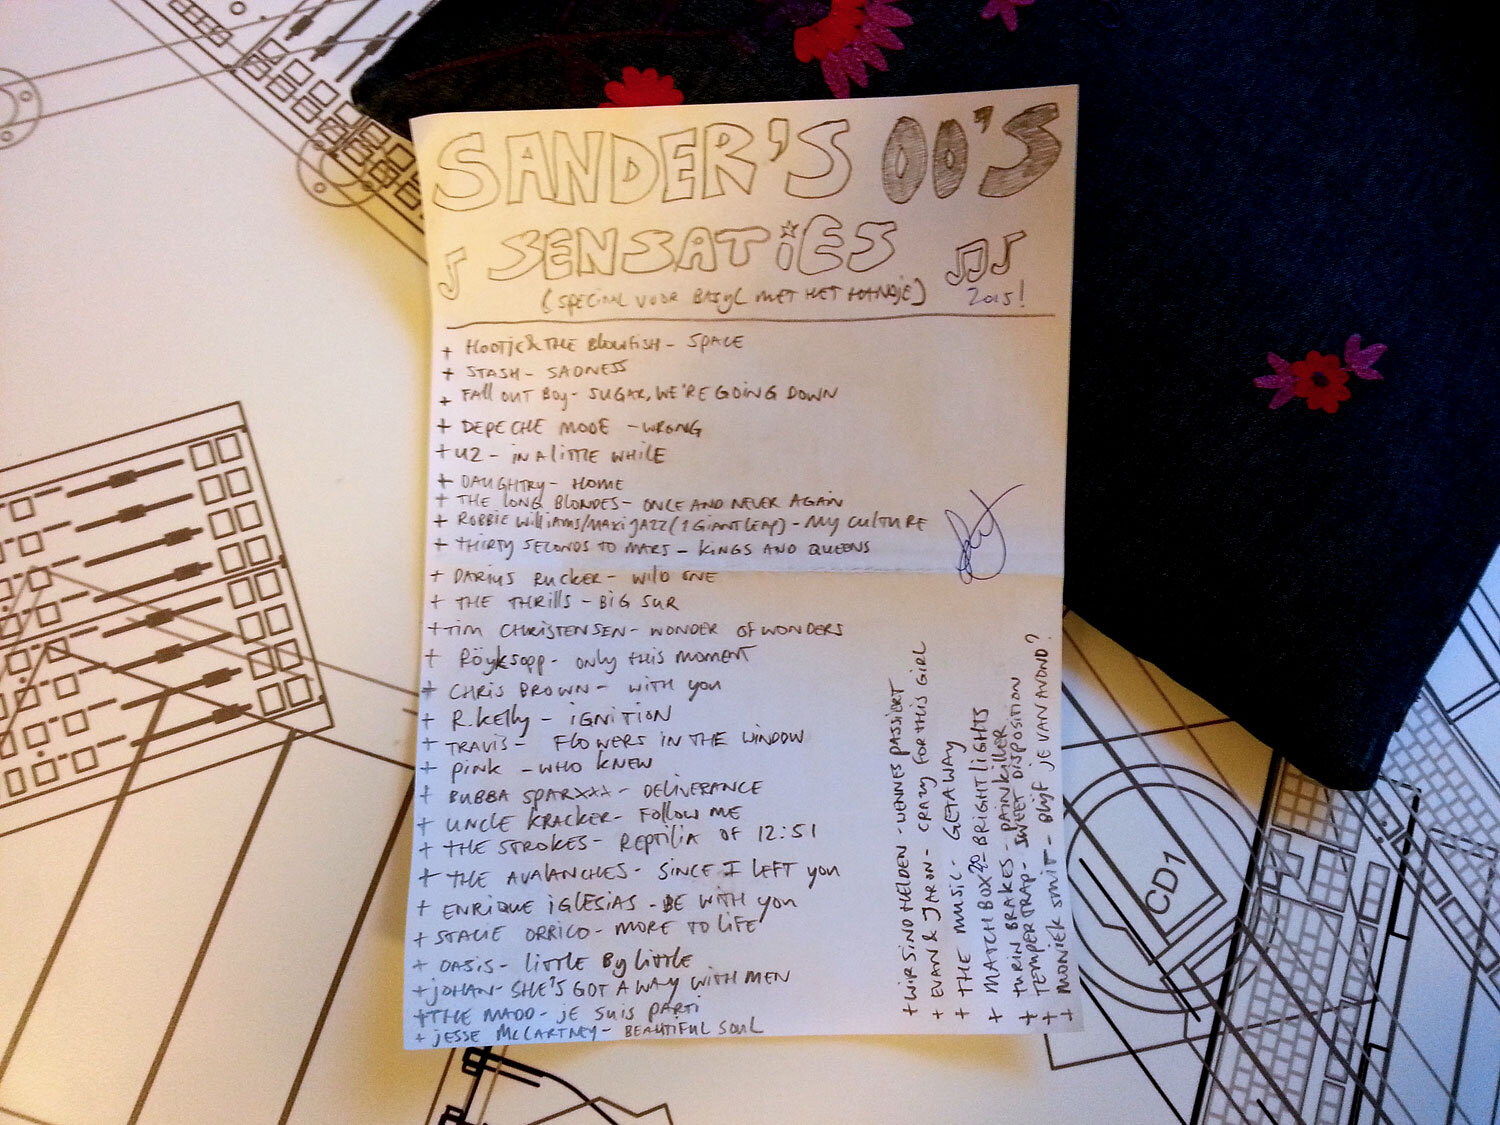 SANDER'S 00'S
SENSATiES
2015!
(SPECIAL VOOR BASYL MET HET HANDJE)
+ HOOTIE & THE BLOWFISH - SPACE
+ STASH - SADNESS
+ FALL OUT BOY - SUGAR, WE'RE GOING DOWN
+ DEPECHE MODE - WRONG
+ U2 - IN A LITTLE WHILE
+ DAUGHTRY - HOME
+ THE LONG BLONDES - ONCE AND NEVER AGAIN
+ ROBBIE WILLIAMS/MAXI JAZZ (1 GIANT LEAP) - MY CULTURE
+ THIRTY SECONDS TO MARS - KINGS AND QUEENS
+ DARIUS RUCKER - WILD ONE
+ THE THRILLS - BIG SUR
+ TIM CHRISTENSEN - WONDER OF WONDERS
+ Röyksopp - ONLY THIS MOMENT
+ CHRIS BROWN - WITH YOU
+ R. KELLY - IGNITION
+ TRAVIS - FLOWERS IN THE WINDOW
+ PINK - WHO KNEW
+ BUBBA SPARXXX - DELIVERANCE
+ UNCLE KRACKER - FOLLOW ME
+ THE STROKES - REPTILIA OF 12:51
+ THE AVALANCHES - SINCE I LEFT YOU
+ ENRIQUE IGLESIAS - BE WITH YOU
+ STACIE ORRICO - MORE TO LIFE
+ OASIS - LITTLE BY LITTLE
+ JOHAN - SHE'S GOT A WAY WITH MEN
+ THE MADD - JE SUIS PARTI
+ JESSE McCARTNEY - BEAUTIFUL SOUL
+ WIR SIND HELDEN - WENN ES PASSIERT
+ EVAN & JARON - CRAZY FOR THIS GIRL
+ THE MUSIC - GETAWAY
+ MATCHBOX 20 - BRIGHT LIGHTS
+ TURIN BRAKES - PAINKILLER
+ TEMPER TRAP - SWEET DISPOSITION
+ MONIEK SMIT - BLIJF JE VANAVOND?
+
CD1